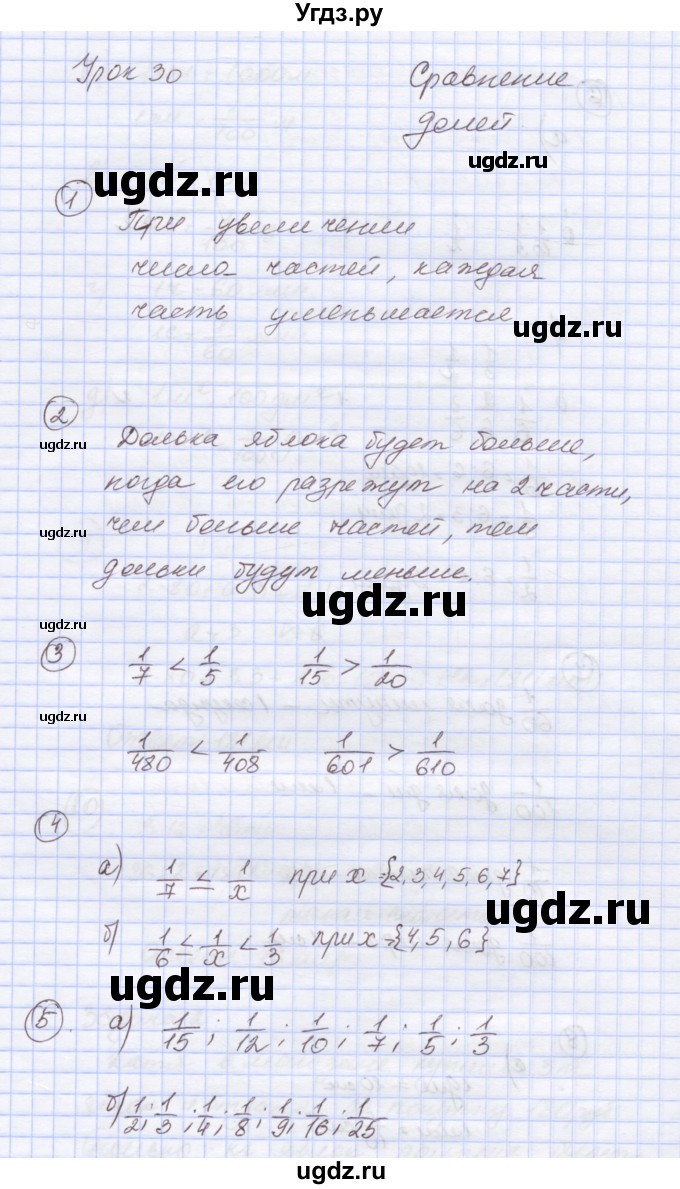 Угдз.ру
Урок 30 Сравнение
долей
ugdz.ru
ugdz.ru
1 При увеличении
числа частей, каждая
часть уменьшается
ugdz.ru
2 Долька яблока будет больше,
ugdz.ru
когда его разрежут на 2 части,
чем больше частей, тем
ugdz.ru
дольки будут меньше.
ugdz.ru
ugdz.ru
3 1/7 < 1/5 1/15 > 1/20
ugdz.ru
1/480 < 1/408 1/601 > 1/610
4
а) 1/7 ≤ 1/x при x={2,3,4,5,6,7}
ugdz.ru
б) 1/6 ≤ 1/x < 1/3 при x={4,5,6}
ugdz.ru
5. а) 1/15; 1/12; 1/10; 1/7; 1/5; 1/3
б) 1/2; 1/3; 1/4; 1/8; 1/9; 1/16; 1/25
ugdz.ru
ugdz.ru